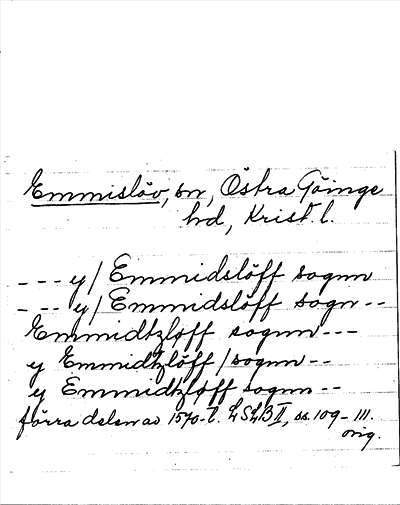 Emmislöv, sn, Östra Göinge
hd, Krist. l.
--- y/ Emmidslöff sognn
--- y/ Emmidslöff sogn--
Emmidtzløff sognn---
y Emmidtzlöff /sognn--
y Emmidtzløff sognn--
förra delen av 1570-t. LSLB II, ss. 109-111.
orig.